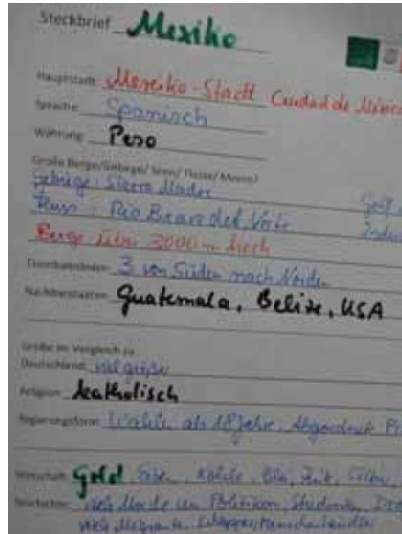 Steckbrief Mexiko
Hauptstadt: Mexiko-Stadt Ciudad de México
Sprache: Spanisch
Währung: Peso
Große Berge/Gebirge/ Seen/ Flüsse/ Meere?
Gebirge: Sierra Madre
Fluss: Rio Bravo del Norte
Berge über 3000 m hoch
3 von Süden nach Norden
Nachbarstaaten: Guatemala, Belize, USA
Größe im Vergleich zu
Deutschland: viel größer
Religion: katholisch
Regierungsform: Wahlen ab 18 Jahre,
Wirtschaft: Gold, Kohle, Blei, Silber,
viele Morde an Politikern, Studenten,
viele Migranten